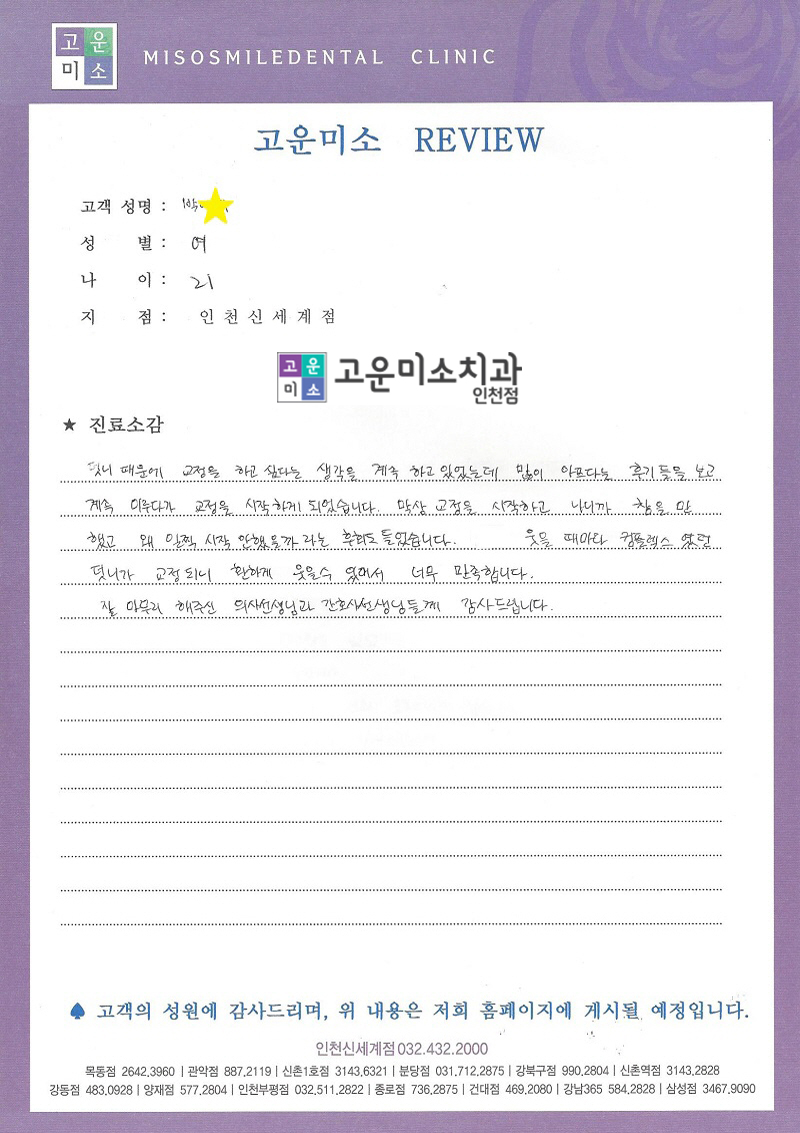 고운
미소
MISOSMILEDENTAL CLINIC
고운미소 REVIEW
고객 성명 : 박
성 별 : 여
나 이 : 21
지 점 : 인천신세계점
고운
미소
고운미소치과
인천점
★ 진료소감
덧니 때문에 교정을 하고 싶다는 생각을 계속 하고 있었는데 많이 아프다는 후기들을 보고
계속 미루다가 교정을 시작하게 되었습니다. 막상 교정을 시작하고 나니까 참을 만
했고 왜 일찍 시작 안했을까 라는 후회도 들었습니다. 웃을 때마다 컴플렉스 였던
덧니가 교정되니 환하게 웃을수 있어서 너무 만족합니다.
잘 마무리 해주신 의사선생님과 간호사선생님들께 감사드립니다.
♠ 고객의 성원에 감사드리며, 위 내용은 저희 홈페이지에 게시될 예정입니다.
인천신세계점 032.432.2000
목동점 2642.3960 | 관악점 887.2119 | 신촌1호점 3143.6321 | 분당점 031.712.2875 | 강북구점 990.2804 | 신촌역점 3143.2828
강동점 483.0928 | 양재점 577.2804 | 인천부평점 032.511.2822 | 종로점 736.2875 | 건대점 469.2080 | 강남365 584.2828 | 삼성점 3467.9090